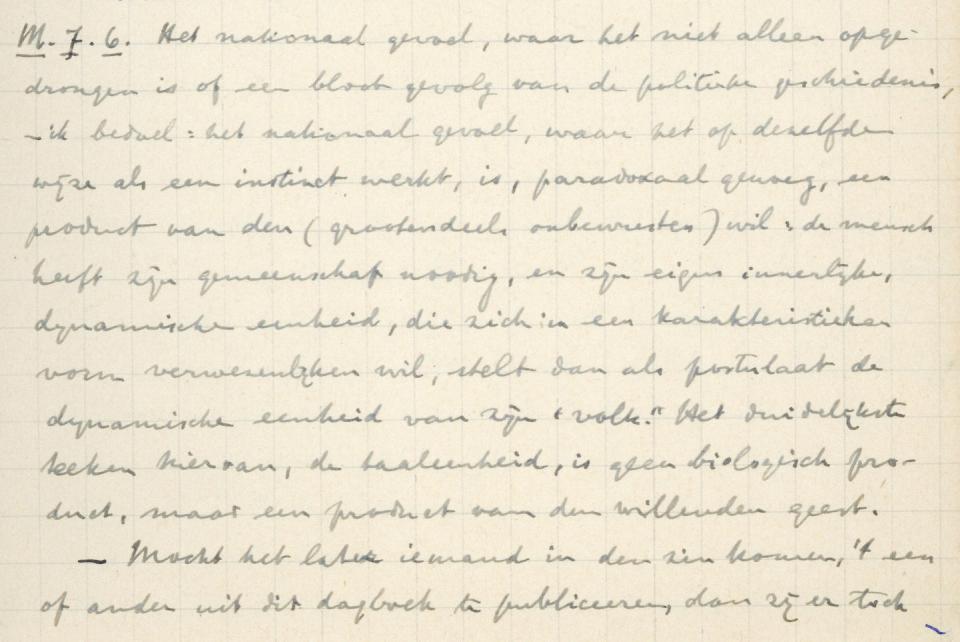 M. 7. 6. Het nationaal gevoel, waar het niet alleen opge-
drongen is of een bloot gevolg van de politieke geschiedenis,
– ik bedoel: het nationaal gevoel, waar het op dezelfde
wijze als een instinct werkt, is, paradoxaal genoeg, een
product van den (grootendeels onbewusten) wil: de mensch
heeft zijn gemeenschap noodig, en zijn eigen innerlijke,
dynamische eenheid, die zich in een karakteristieken
vorm verwezenlijken wil, stelt dan als postulaat de
dynamische eenheid van zijn "volk." Het duidelijkste
teeken hiervan, de taaleenheid, is geen biologisch pro-
duct, maar een product van den willenden geest.
– Mocht het later iemand in den zin komen, 't een
of ander uit dit dagboek te publiceeren, dan zij er toch